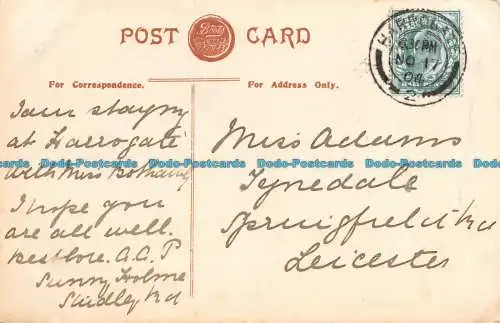 POST CARD
For Correspondence.
For Address Only.
HARROGATE
NO 17
I am staying
at Harrogate
with Miss
I hope you
are all well.
Best love. A.A.P
Sunny Holme
Studley Rd
Miss Adams
Tynedale
Springfield Rd
Leicester
Dodo-Postcards Dodo-Postcards Dodo-Postcards Dodo-Postcards